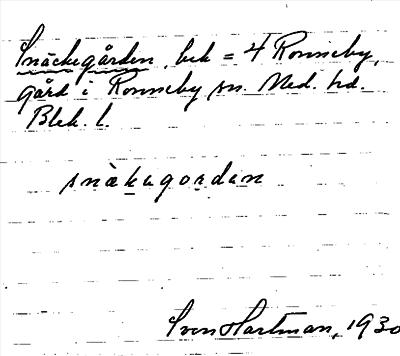 Snäckegården, bek = 4 Ronneby,
gård i Ronneby sn. Med. hd.
Blek. l.
snäkagordan
Sven Hartman, 1930